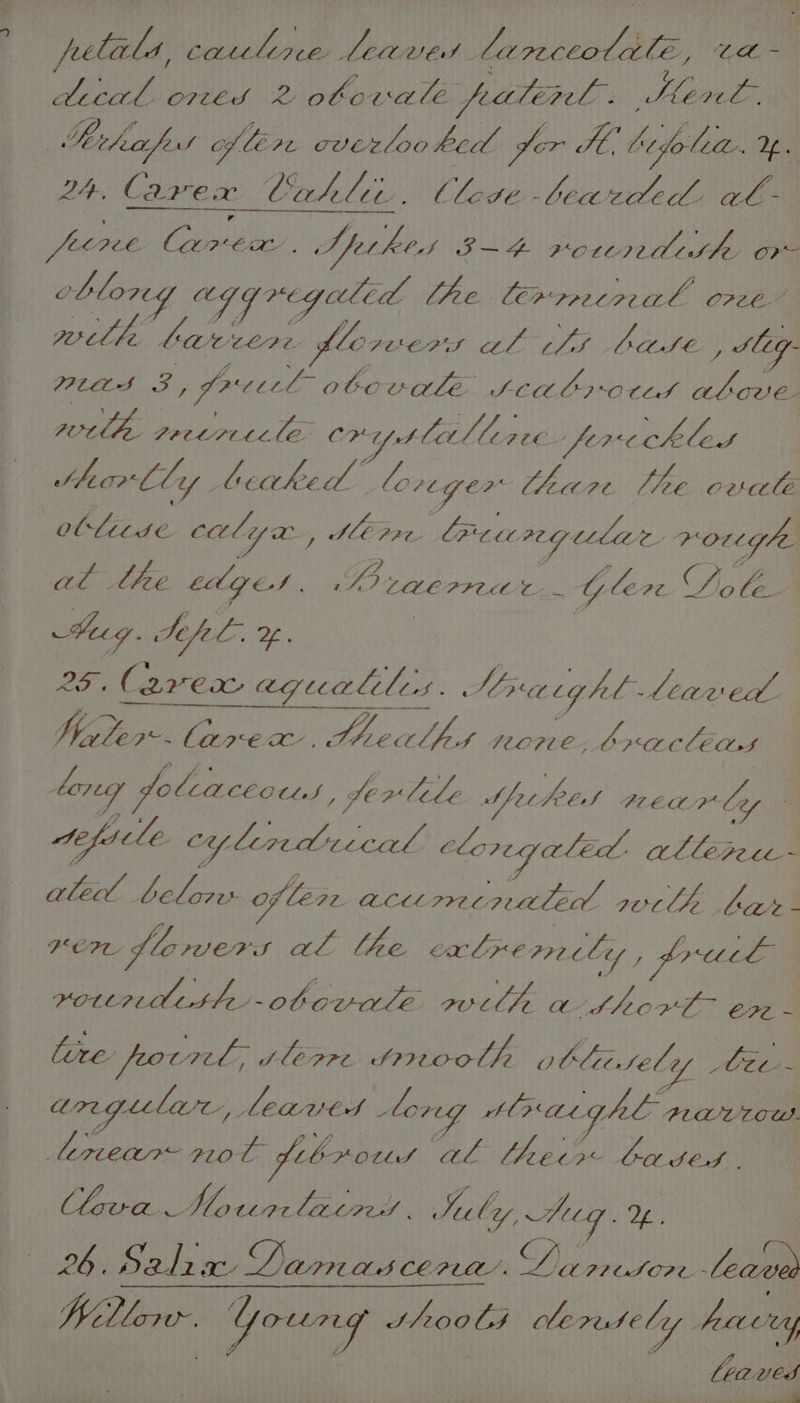 petals, cauline leaves lanceolate, ra-
dical ones 2 obovate patent. Kent.
Perhaps often overlooked for H. bifolia. ♃.
24. Carex Vahlii. Close-bearded al-
pine Carex. Spikes 3-4 roundish or
oblong aggregated the terminal one
with barren flowers at its base, stig-
mas 3, fruit obovate scabrous above
with minute crystalline prickles
shortly beaked longer than the ovate
obtuse calyx, stem triangular rough
at the edges. Braemar - Glen Dole
Aug. Sept. ♃.
25. Carex aquatilis. Straight-leaved
Water-Carex. Sheaths none, bracteas
long foliaceous, fertile spikes nearly
sessile cylindrical elongated attenu-
ated below often acuminated with bar-
ren flowers at the extremity, fruit
roundish-obovate with a short en-
tire point, stem smooth obtusely tri-
angular, leaves long straight narrow
linear not fibrous at their bases.
Clova Mountains. July, Aug. ♃.
26. Salix Damascena. Damson-leaved
Willow. Young shoots densely hairy
leaves